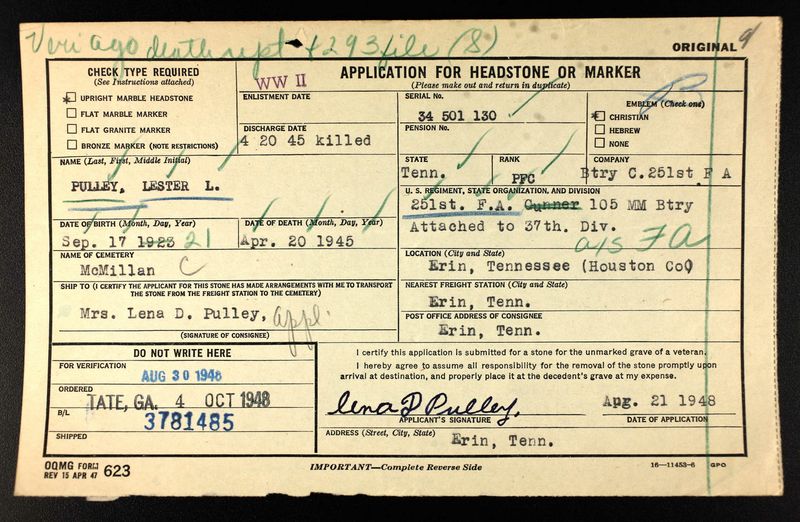 Veri ago death rept + 293 file (8)
ORIGINAL
CHECK TYPE REQUIRED
(See Instructions attached)
UPRIGHT MARBLE HEADSTONE
FLAT MARBLE MARKER
FLAT GRANITE MARKER
BRONZE MARKER (NOTE RESTRICTIONS)
WW II
ENLISTMENT DATE
DISCHARGE DATE
4 20 45 killed
APPLICATION FOR HEADSTONE OR MARKER
(Please make out and return in duplicate)
SERIAL No.
34 501 130
PENSION No.
EMBLEM (Check one)
CHRISTIAN
HEBREW
NONE
NAME (Last, First, Middle Initial)
PULLEY, LESTER L.
STATE
Tenn.
RANK
PFC
COMPANY
Btry C.251st F A
U. S. REGIMENT, STATE ORGANIZATION, AND DIVISION
251st. F.A. Gunner 105 MM Btry
Attached to 37th. Div.
a/s FA
DATE OF BIRTH (Month, Day, Year)
Sep. 17 1923 21
DATE OF DEATH (Month, Day, Year)
Apr. 20 1945
NAME OF CEMETERY
McMillan C
LOCATION (City and State)
Erin, Tennessee (Houston Co)
SHIP TO (I CERTIFY THE APPLICANT FOR THIS STONE HAS MADE ARRANGEMENTS WITH ME TO TRANSPORT
THE STONE FROM THE FREIGHT STATION TO THE CEMETERY)
Mrs. Lena D. Pulley, appl.
(SIGNATURE OF CONSIGNEE)
NEAREST FREIGHT STATION (City and State)
Erin, Tenn.
POST OFFICE ADDRESS OF CONSIGNEE
Erin, Tenn.
DO NOT WRITE HERE
FOR VERIFICATION
AUG 30 1948
ORDERED
TATE, GA. 4 OCT 1948
B/L
3781485
SHIPPED
I certify this application is submitted for a stone for the unmarked grave of a veteran.
I hereby agree to assume all responsibility for the removal of the stone promptly upon
arrival at destination, and properly place it at the decedent's grave at my expense.
Lena D Pulley,
APPLICANT'S SIGNATURE
Aug. 21 1948
DATE OF APPLICATION
ADDRESS (Street, City, State)
Erin, Tenn.
OQMG FORM 623
REV 15 APR 47
IMPORTANT—Complete Reverse Side
16—11453-6 GPO